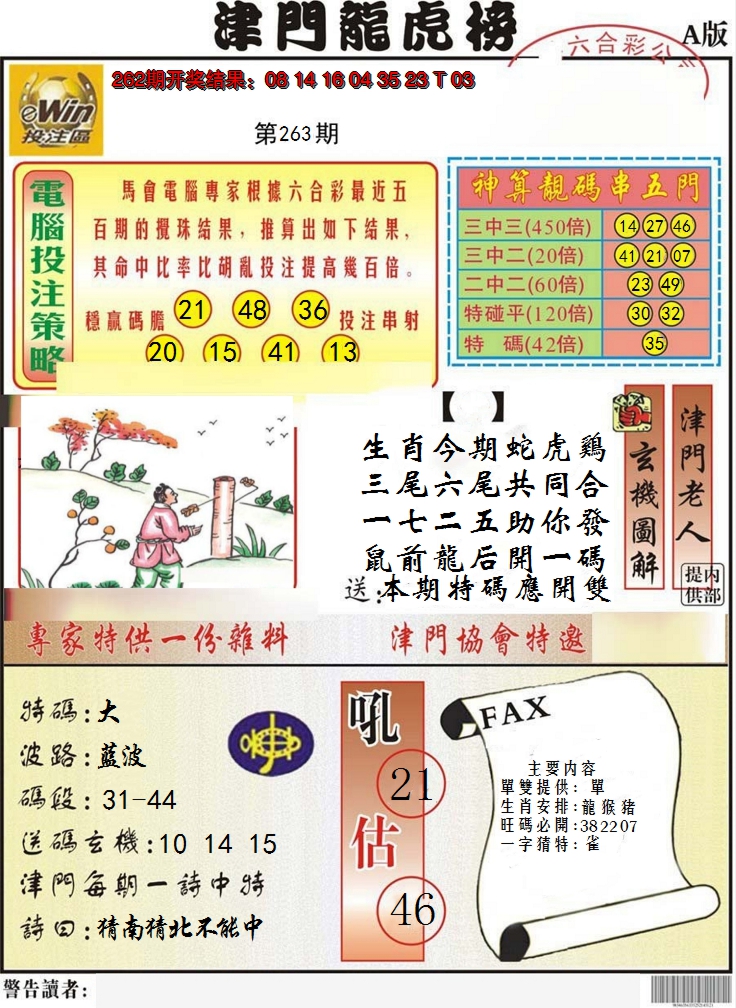 津門龍虎榜
A版
六合彩公
eWin
投注區
262期开奖结果：08 14 16 04 35 23 T 03
第263期
電腦投注策略
馬會電腦專家根據六合彩最近五
百期的攪珠结果，推算出如下结果，
其命中比率比胡亂投注提高幾百倍。
穩贏碼膽 21 48 36 投注串射
20 15 41 13
神算靚碼串五門
三中三(450倍) 14 27 46
三中二(20倍) 41 21 07
二中二(60倍) 23 49
特碰平(120倍) 30 32
特 碼(42倍) 35
【 】
生肖今期蛇虎鷄
三尾六尾共同合
一七二五助你發
鼠前龍后開一碼
送:本期特碼應開雙
玄機圖解
津門老人
内部提供
專家特供一份雜料
津門協會特邀
特碼:大
波路:藍波
碼段:31-44
送碼玄機:10 14 15
津門每期一詩中特
詩曰:猜南猜北不能中
吼
21
估
46
FAX
主要内容
單雙提供：單
生肖安排:龍猴豬
旺碼必開:382207
一字猜特:雀
警告讀者: